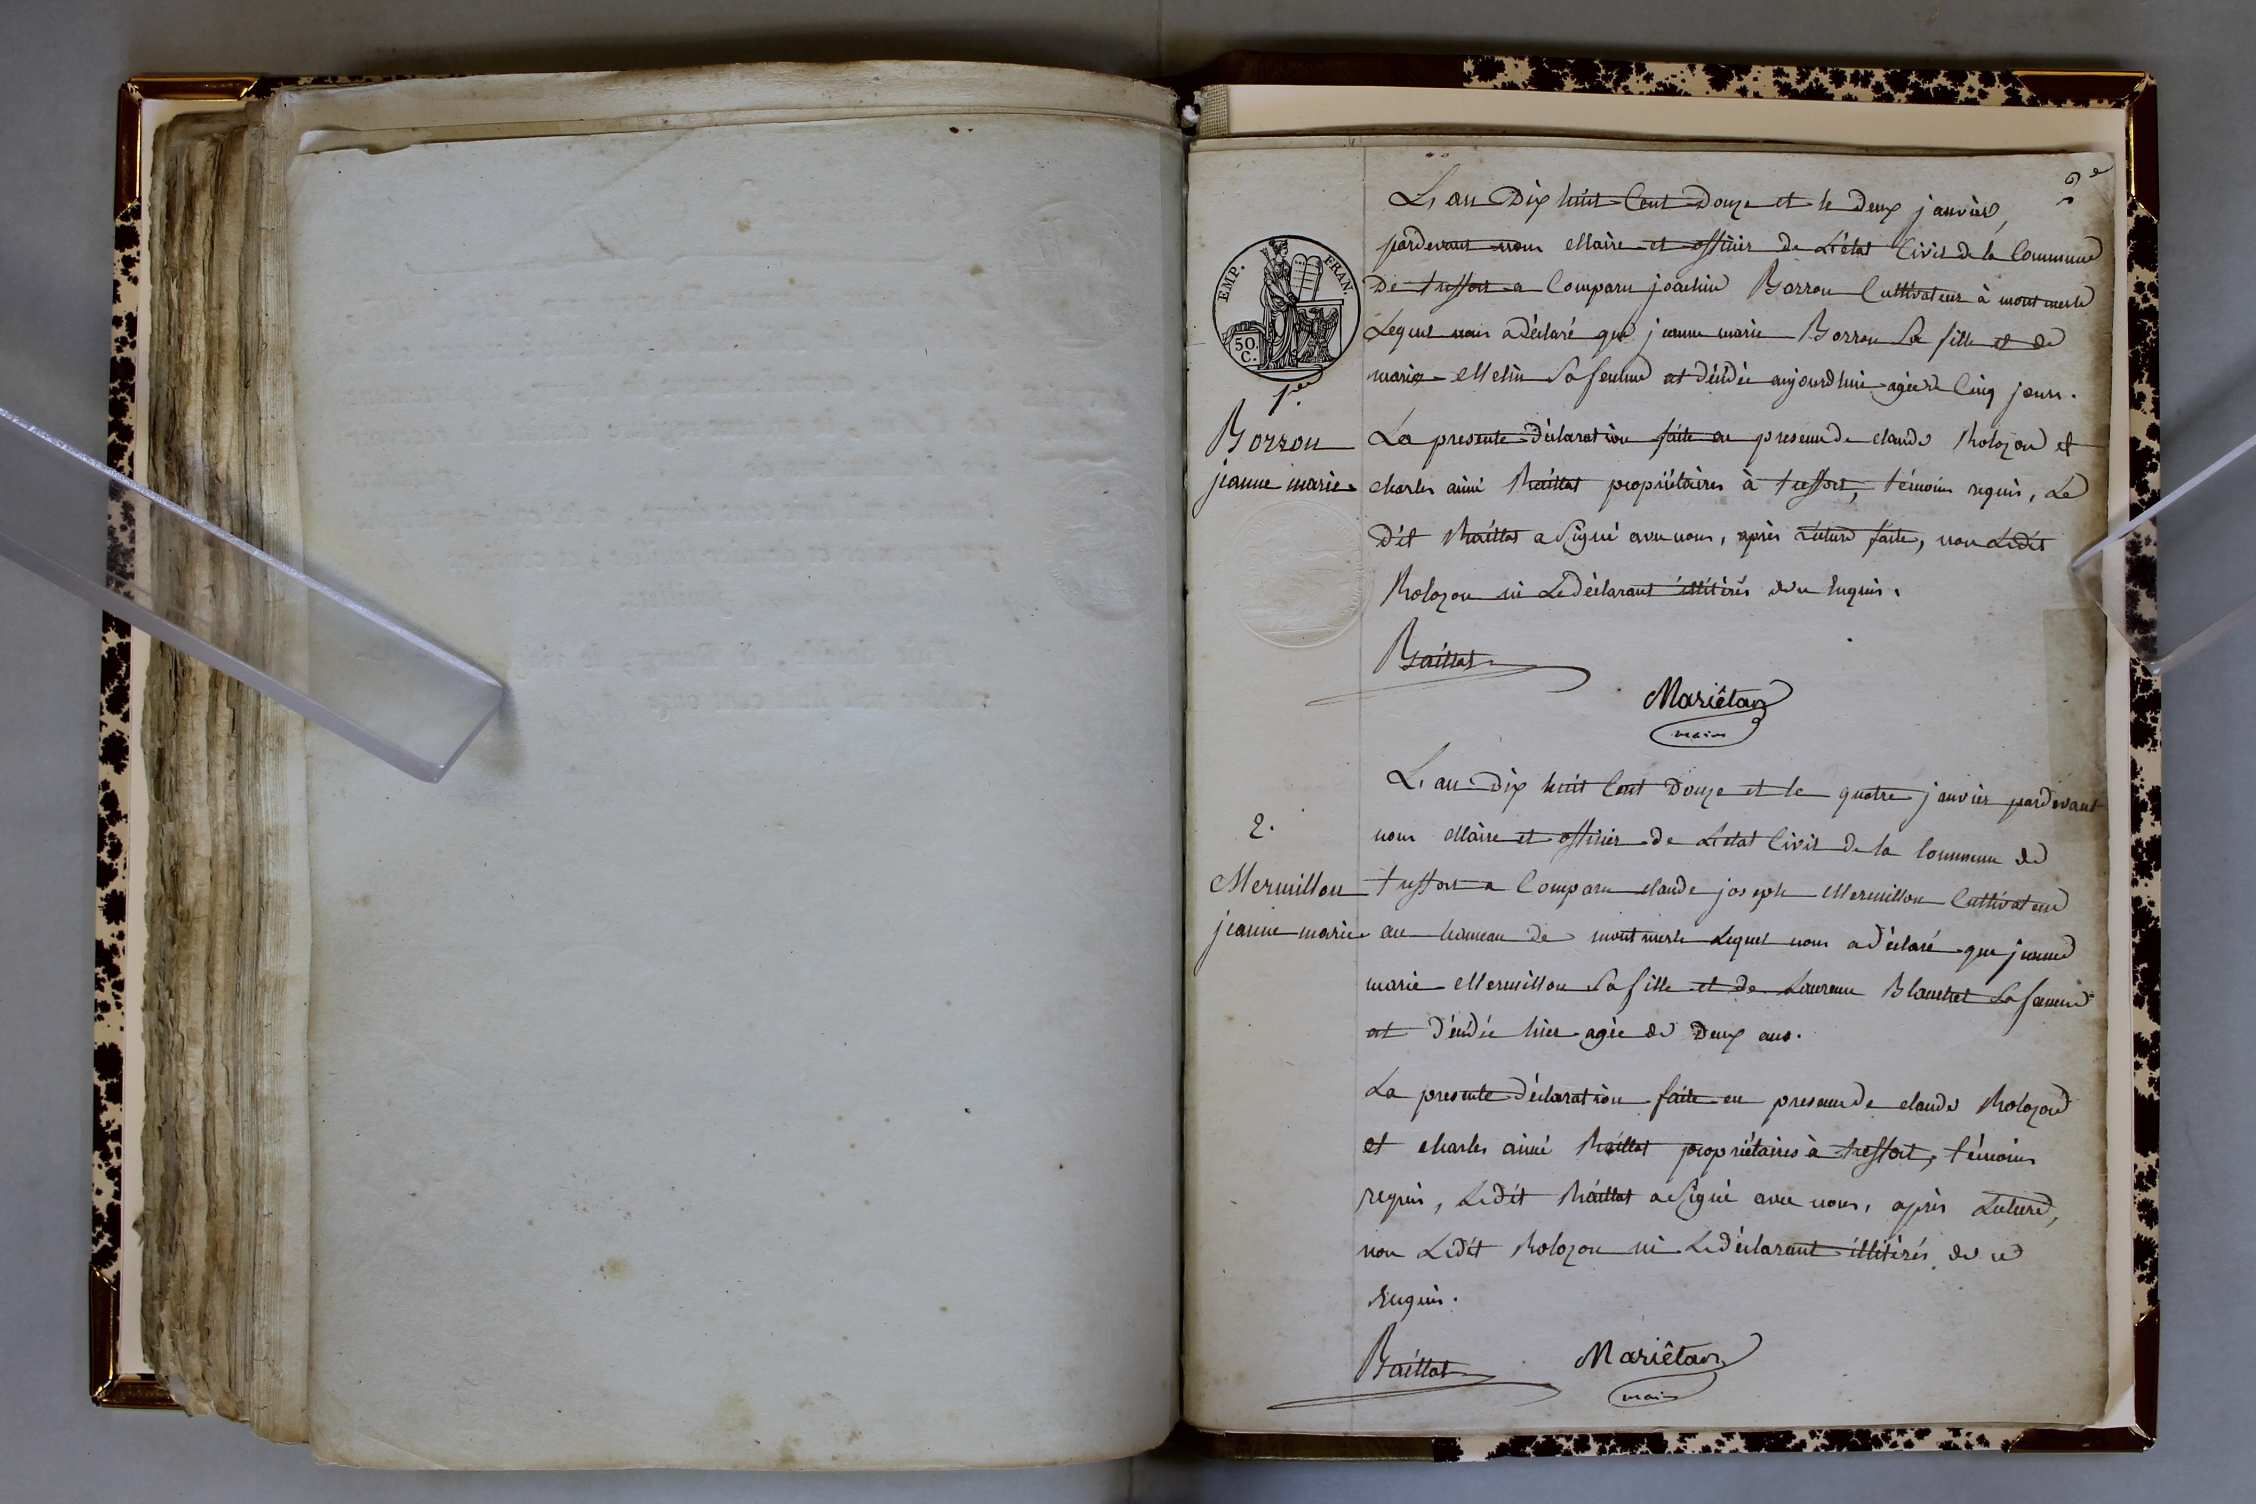 2e
L'an Dix huit Cent Douze et le deux janvier,
pardevant nous Maire et officier de L'état Civil de la Commune
De treffort a Comparu joachin Borron Cultivateur à montmerle
Lequel nous a déclaré que jeanne marie Borron Sa fille et de
marie Melin Sa femme est décédée aujourdhui agée de Cinq jours.
EMP. FRAN.
50. C.
1er
Borron
jeanne marie
La presente déclaration faite en presence de claude Rolozon et
charles aimé Baillat propriétaires à treffort, témoins requis, Le
dit Baillat a Signé avec nous, après Lecture faite, non Ledit
Rolozon ni Le déclarant illitérés de ce Enquis.
Baillat
Mariêtan
maire
L'an Dix huit Cent Douze et le quatre janvier pardevant
nous Maire et officier de L'etat Civil de la Commune de
treffort a Comparu claude joseph Mermillon Cultivateur
au hameau de montmerle Lequel nous a déclaré que jeanne
marie Mermillon Sa fille et de Laurence Blanchet Sa femme
est décédée hier agée de Deux ans.
2.
Mermillon
jeanne marie
La presente déclaration faite en presence de claude Rolozon
et charles aimé Baillat propriétaires à treffort, témoins
requis, Ledit Baillat a Signé avec nous, après Lecture,
non Ledit Rolozon ni Le déclarant illitérés de ce
Enquis.
Baillat
Mariêtan
maire